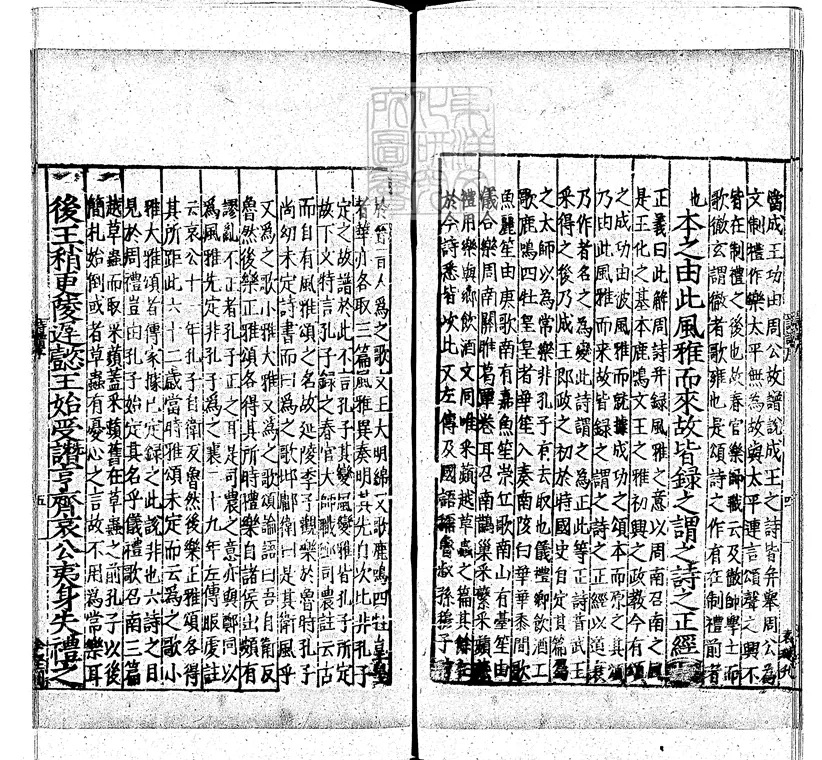 當成王功由周公故譜說成王之詩皆幷舉周公爲
文制禮作樂大平無為故與大平連言頌聲之興不
皆在制禮之後也故春官樂師職云及徹帥學士而
歌徹玄謂徹者歌雍也是頌詩之作有在制禮前者
也
本之由此風雅而來故皆録之謂之詩之正經
正義曰此解周詩并録風雅之意以周南召南之風
是王化之基本鹿鳴文王之雅初興之政教今有頌
之成功由彼風雅而就據成功之頌本而原之其頌
乃由此風雅而來故皆録之謂之詩之正經以道衰
乃作者名之為變此詩謂之為正此等正詩昔武王
采得之後乃成王即政之初於時國史自定其篇屬
之大師以為常樂非孔子有去取也儀禮鄉飲酒工
歌鹿鳴四牡皇皇者華笙入奏南陔白華華黍間歌
魚麗笙由庚歌南有嘉魚笙崇丘歌南山有臺笙由
儀合樂周南關雎葛覃卷耳召南鵲巢采蘩采蘋燕
禮用樂與鄉飲酒文同唯采蘋越草蟲之篇其餘在
於今詩悉皆次比又左傳及國語稱魯叔孫穆子
於晉言人為之歌文王大明綿又歌鹿鳴四牡皇皇
者華亦各取三篇風雅異奏明其先自次比非孔子
定之故譜於此不言孔子其變風變雅皆孔子所定
故下文特言孔子録之春官大師職鄭司農註云古
而自有風雅頌之名故延陵季子觀樂於魯時孔子
尚幼未定詩書而曰為之歌邶鄘衛曰是其衛風乎
又為之歌小雅大雅又為之歌頌論語曰吾自衛反
魯然後樂正雅頌各得其所時禮樂自諸侯出頗有
謬亂不正者孔子正之耳是司農之意亦與鄭同以
為風雅先定非孔子為之襄二十九年左傳服虔註
云哀公十一年孔子自衛反魯然後樂正雅頌各得
其所距此六十二歲當時雅頌未定而云為之歌小
雅大雅頌者傳家據已定録之此説非也六詩之目
見於周禮豈由孔子始定其名乎儀禮歌召南三篇
越草蟲而取采蘋蓋采蘋舊在草蟲之前孔子以後
簡札始倒或者草蟲有憂心之言故不用為常樂耳
後王稍更陵遲懿王始受譖亨齊哀公夷身失禮之